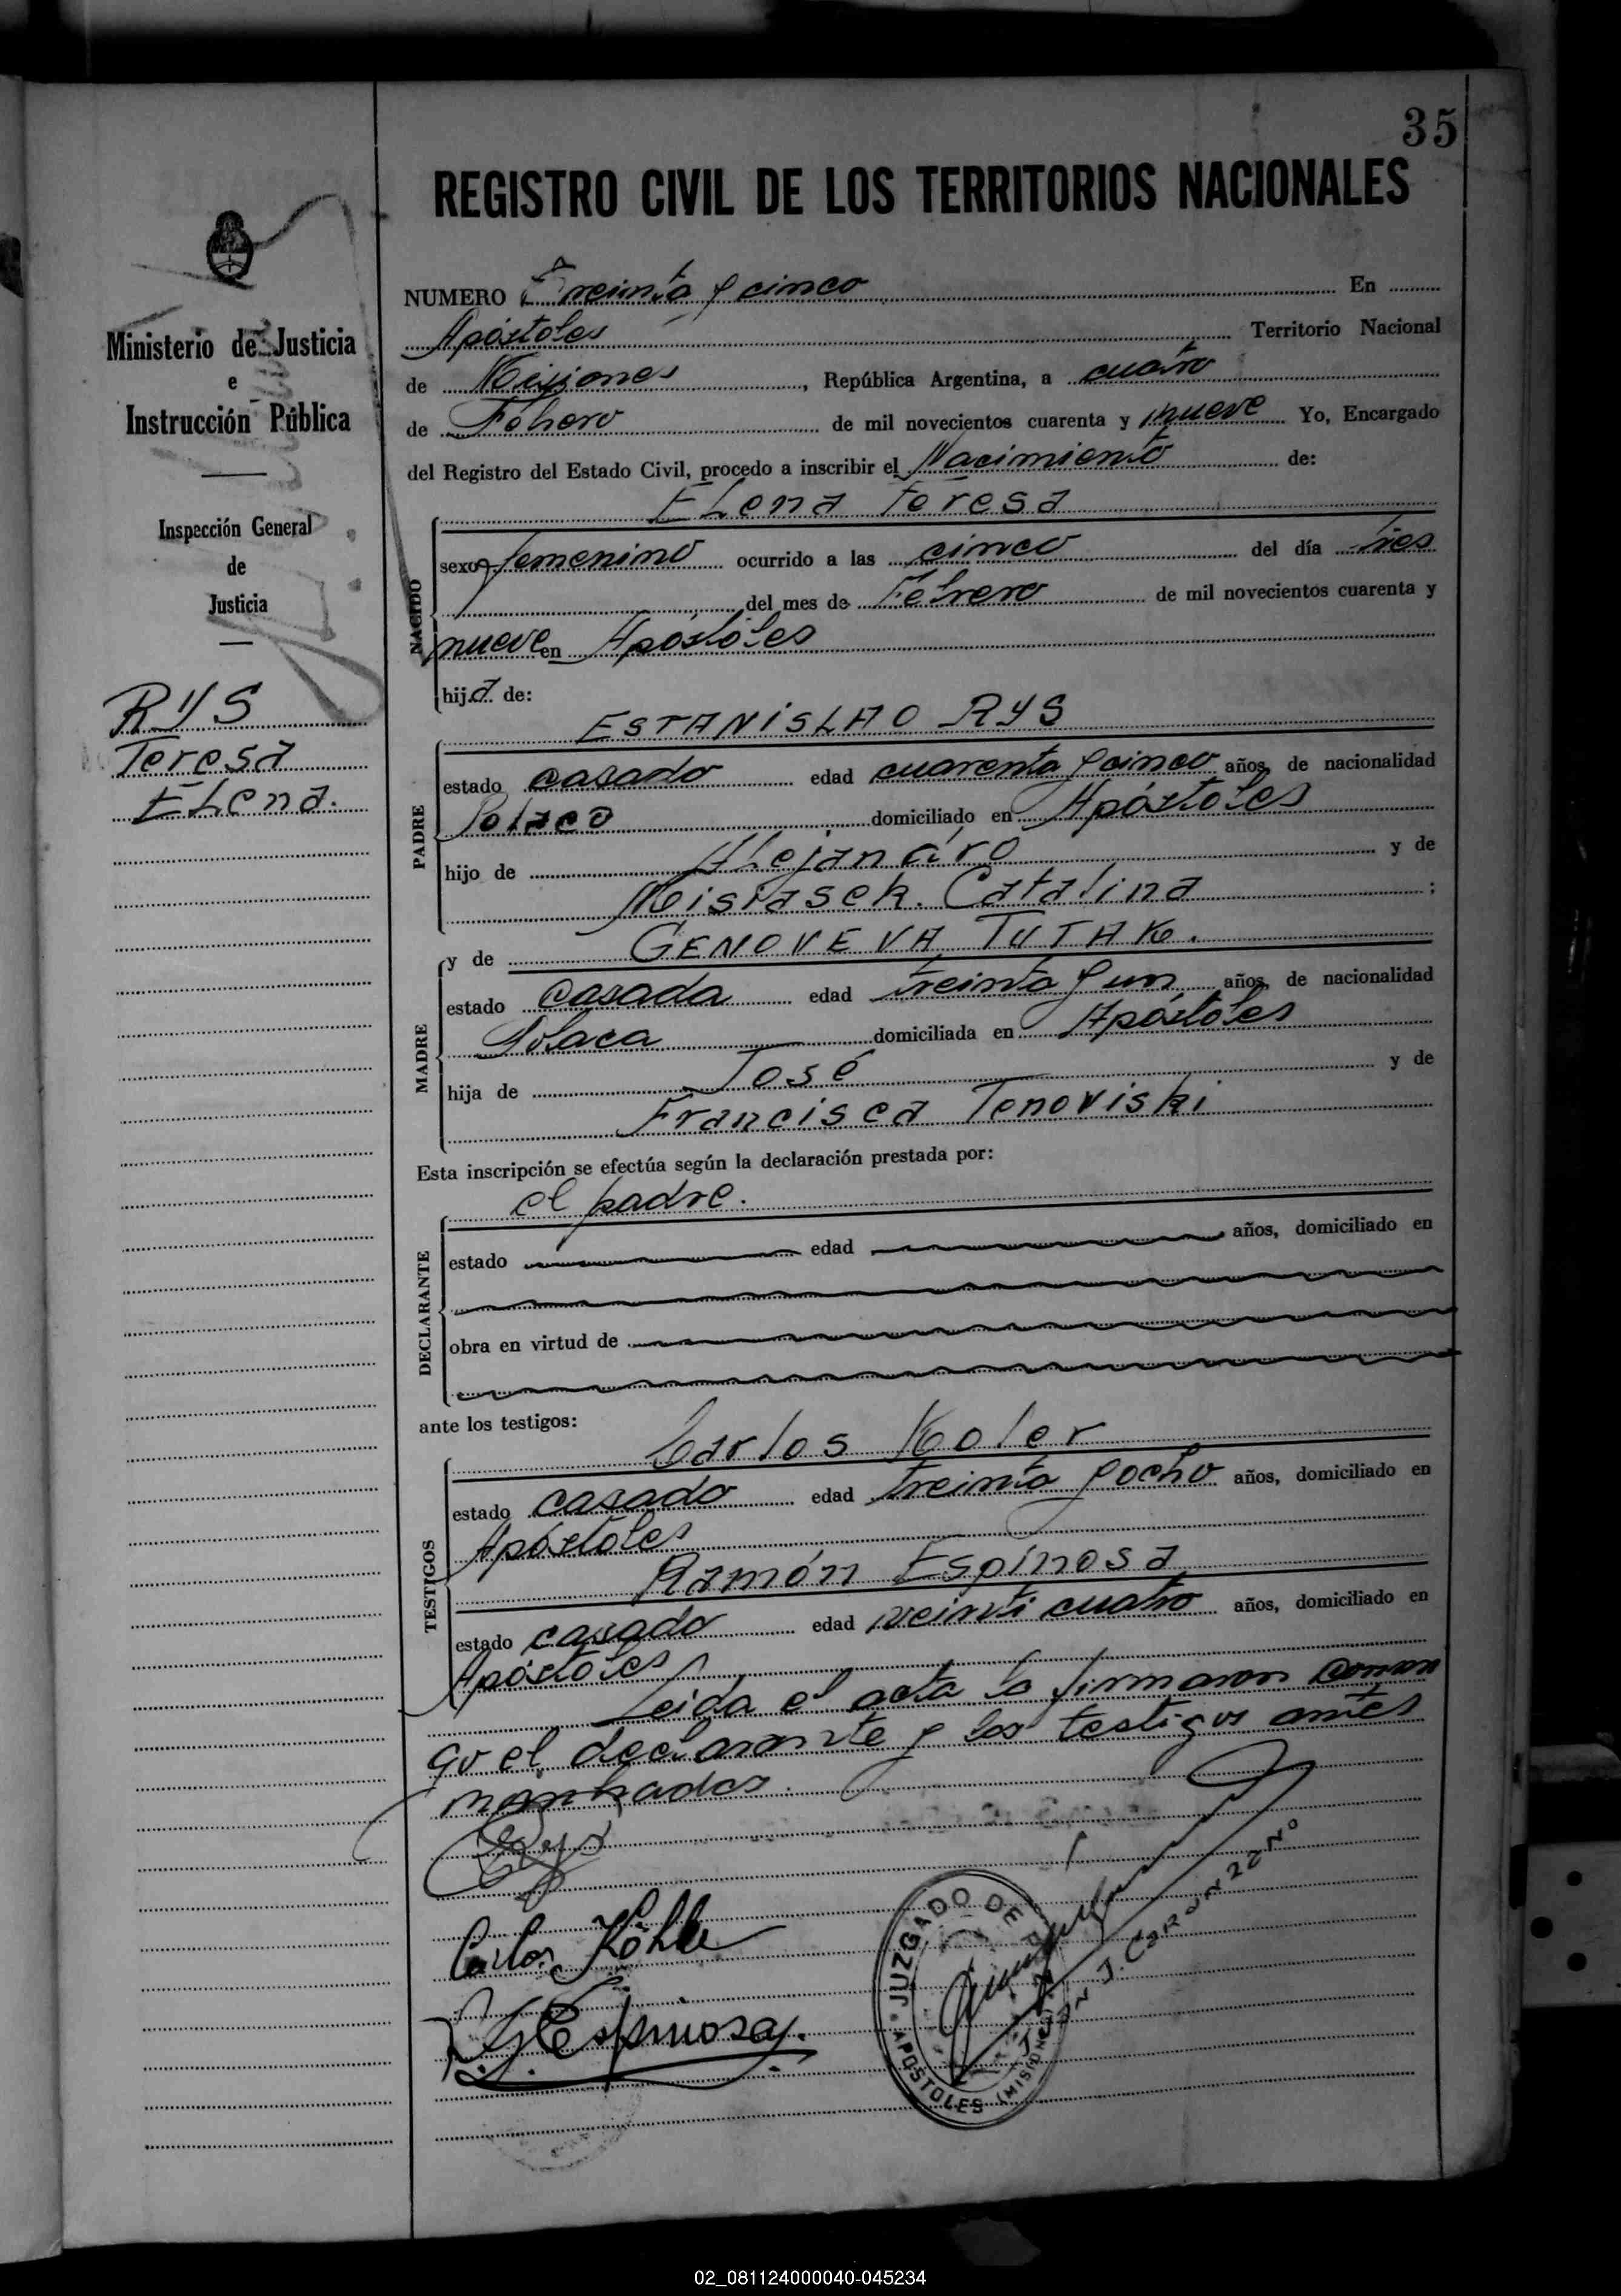 35
REGISTRO CIVIL DE LOS TERRITORIOS NACIONALES
Ministerio de Justicia
e
Instrucción Pública
Inspección General
de
Justicia
RYS
Teresa
Elena.
NUMERO Treinta y cinco En
Apóstoles Territorio Nacional
de Misiones, República Argentina, a cuatro
de Febrero de mil novecientos cuarenta y nueve Yo, Encargado
del Registro del Estado Civil, procedo a inscribir el Nacimiento de:
Elena Teresa
NACIDO
sexo femenino ocurrido a las cinco del día tres
del mes de Febrero de mil novecientos cuarenta y
nueve en Apóstoles
hija de:
ESTANISLAO RYS
PADRE
estado casado edad cuarenta y cinco años, de nacionalidad
Polaco domiciliado en Apóstoles
hijo de Alejandro y de
Misiasek. Catalina :
y de GENOVEVA TUTAK.
MADRE
estado casada edad treinta y un años, de nacionalidad
Polaca domiciliada en Apóstoles
hija de José y de
Francisca Tenoviski
Esta inscripción se efectúa según la declaración prestada por:
el padre.
DECLARANTE
estado edad años, domiciliado en
obra en virtud de
ante los testigos:
Carlos Koler
TESTIGOS
estado casado edad treinta y ocho años, domiciliado en
Apóstoles
Ramón Espinosa
estado casado edad veinti cuatro años, domiciliado en
Apóstoles
Leida el acta la firmaron conmi
go el declarante y los testigos antes
nombrados.
Rys
Carlos Köhle
Espinosa.
JUZGADO DE
APOSTOLES (MISIONES)
JUAN J. CORUNZANO
02_081124000040-045234